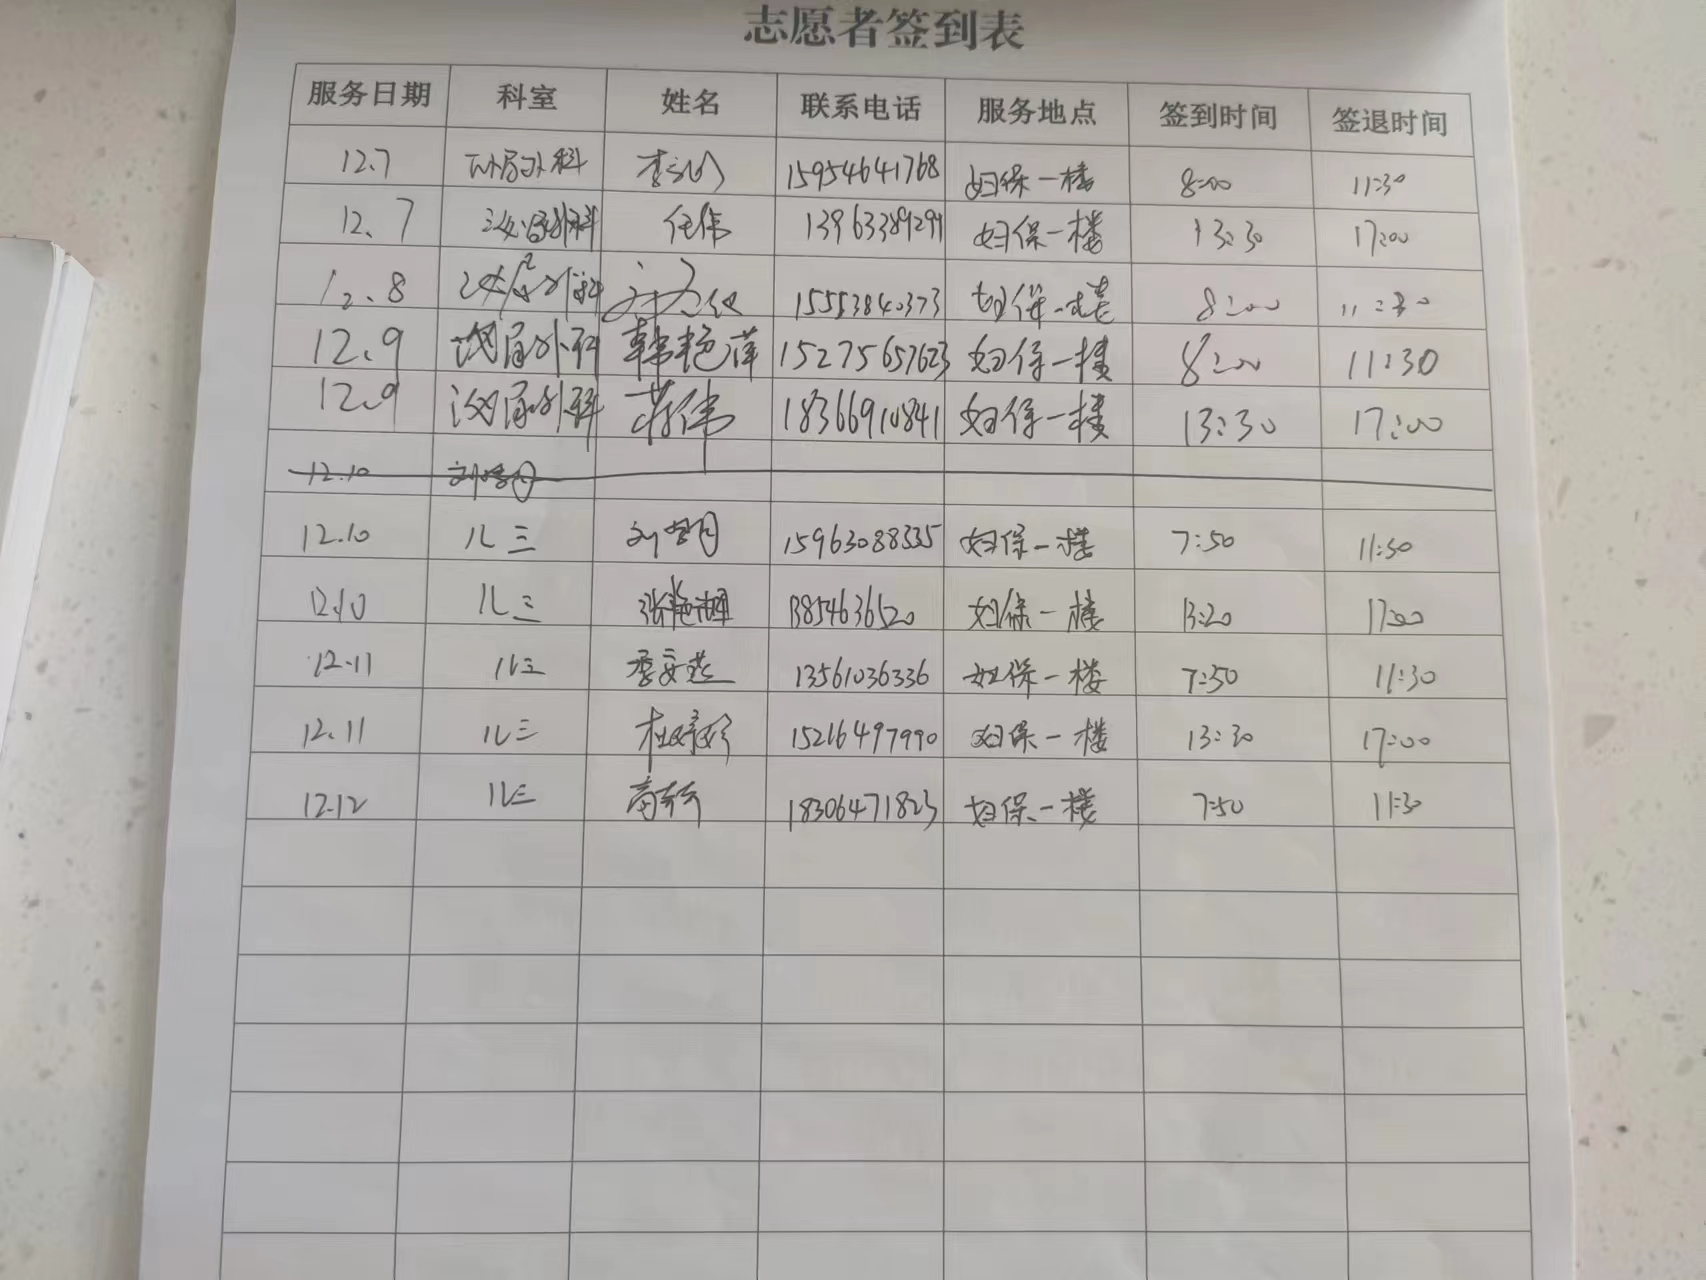 志愿者签到表
服务日期 科室 姓名 联系电话 服务地点 签到时间 签退时间
12.7 泌尿外科 15954641768 妇保一楼 8:00 11:30
12.7 泌尿外科 任伟 13963389299 妇保一楼 13:30 17:00
12.8 泌尿外科 15553840373 妇保一楼 8:00 11:30
12.9 泌尿外科 韩艳萍 15275657623 妇保一楼 8:00 11:30
12.9 泌尿外科 蒋伟 18366910841 妇保一楼 13:30 17:00
12.10
12.10 儿三 15963088335 妇保一楼 7:50 11:30
12.10 儿三 13854636520 妇保一楼 13:20 17:00
12.11 儿三 13561036336 妇保一楼 7:50 11:30
12.11 儿三 15216497990 妇保一楼 13:30 17:00
12.12 儿三 18306471823 妇保一楼 7:50 11:30